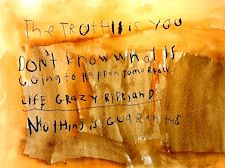 The TROTH IS is you
Don't know what is
Going to happen tomorrow.
LIFE GRAZY RIDE, AND
NOTHING IS GUARANTD